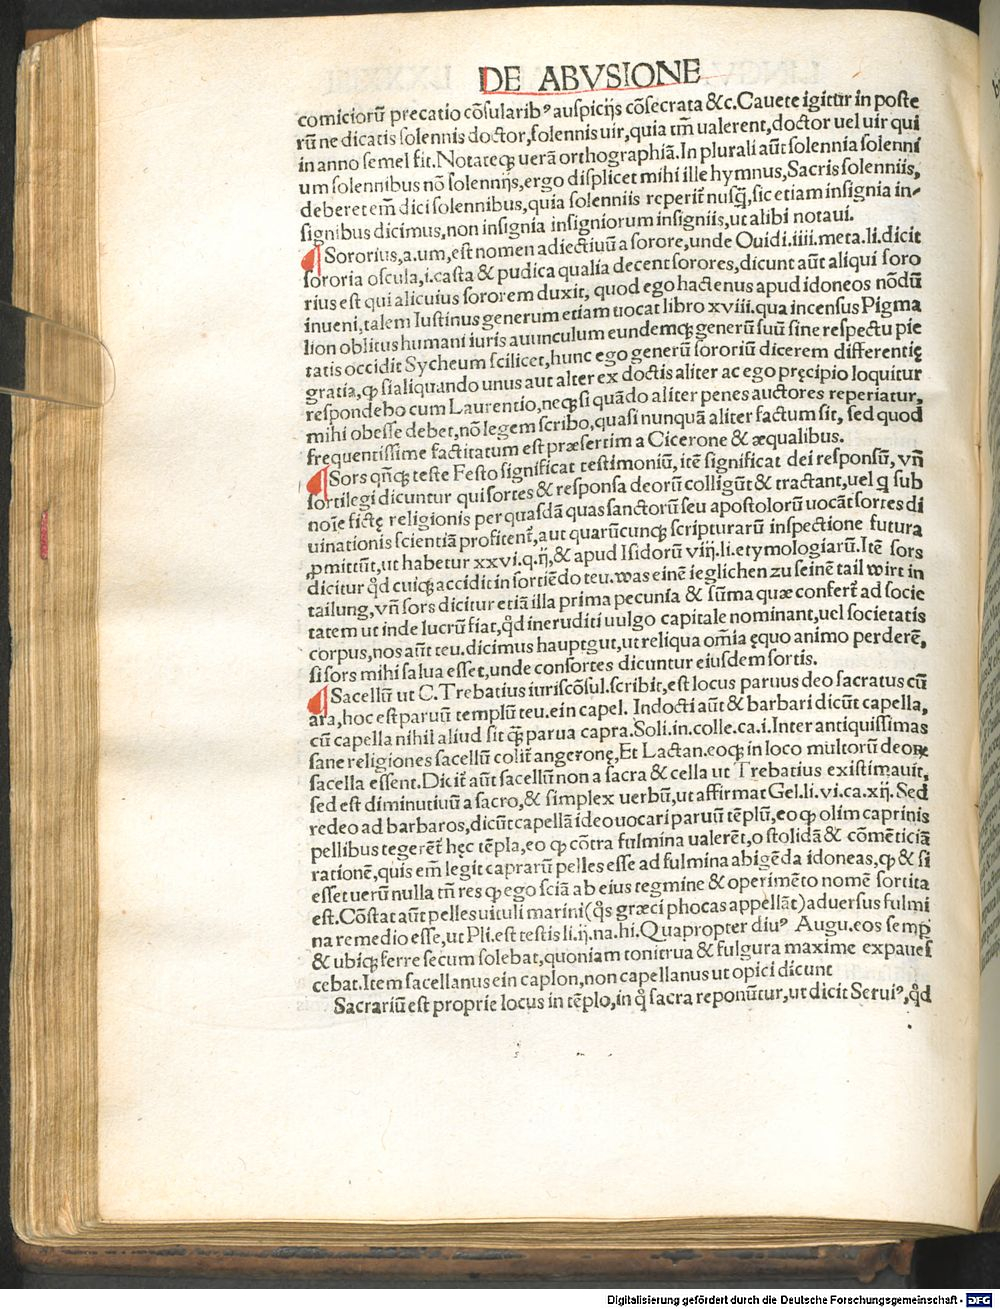 DE ABVSIONE
comiciorũ precatio cõsularibꝰ auspicijs cõsecrata &c. Cauete igitur in poste
rũ ne dicatis solennis doctor, solennis uir, quia tm̃ ualerent, doctor uel uir qui
in anno semel fit. Notateqꝫ uerã orthographiã. In plurali aũt solennia solenni
um solennibus nõ solennijs, ergo displicet mihi ille hymnus, Sacris solenniis,
deberet em̃ dici solennibus, quia solenniis reperit̃ nusq̃, sic etiam insignia in-
signibus dicimus, non insignia insigniorum insigniis, ut alibi notaui.
¶ Sororius, a. um, est nomen adiectiuũ a sorore, unde Ouidi. iiii. meta. li. dicit
sororia oscula, i. casta & pudica qualia decent sorores, dicunt aũt aliqui soro
rius est qui alicuius sororem duxit, quod ego hactenus apud idoneos nõdũ
inueni, talem Iustinus generum etiam uocat libro xviii. qua incensus Pigma
lion oblitus humani iuris auunculum eundemqꝫ generũ suũ sine respectu pie
tatis occidit Sycheum scilicet, hunc ego generũ sororiũ dicerem differentię
gratia, ꝙ si aliquando unus aut alter ex doctis aliter ac ego pręcipio loquitur
respondebo cum Laurentio, neqꝫ si quãdo aliter penes auctores reperiatur,
mihi obesse debet, nõ legem scribo, quasi nunquã aliter factum sit, sed quod
frequentissime factitatum est præsertim a Cicerone & æqualibus.
¶ Sors qñqꝫ teste Festo significat testimoniũ, itẽ significat dei responsũ, vñ
sortilegi dicuntur qui sortes & responsa deorũ colligũt & tractant, uel q̃ sub
noĩe fictę religionis per quasdã quas sanctorũ seu apostolorũ uocãt sortes di
uinationis scientiã profitent̃, aut quarũcunqꝫ scripturarũ inspectione futura
ꝓmittũt, ut habetur xxvi. q. ij, & apud Isidorũ viij. li. etymologiarũ. Itẽ sors
dicitur qd̃ cuiqꝫ accidit in sortiẽdo teu. was einẽ ieglichen zu seinẽ tail wirt in
tailung, vñ sors dicitur etiã illa prima pecunia & sũma quæ confert̃ ad socie
tatem ut inde lucrũ fiat, qd̃ ineruditi uulgo capitale nominant, uel societatis
corpus, nos aũt teu. dicimus hauptgut, ut reliqua om̃ia ęquo animo perderẽ,
si sors mihi salua esset, unde consortes dicuntur eiusdem sortis.
¶ Sacellũ ut C. Trebatius iuriscõsul. scribit, est locus paruus deo sacratus cũ
ara, hoc est paruũ templũ teu. ein capel. Indocti aũt & barbari dicũt capella,
cũ capella nihil aliud sit q̃ parua capra. Soli. in. colle. ca. i. Inter antiquissimas
sane religiones sacellũ colit̃ angeronę, Et Lactan. eoqꝫ in loco multorũ deorꝫ
sacella essent. Dicit̃ aũt sacellũ non a sacra & cella ut Trebatius existimauit,
sed est diminutiuũ a sacro, & simplex uerbũ, ut affirmat Gel. li. vi. ca. xij. Sed
redeo ad barbaros, dicũt capellã ideo uocari paruũ tẽplũ, eo ꝙ olim caprinis
pellibus tegerẽt̃ hęc tẽpla, eo ꝙ cõtra fulmina ualerẽt, o stolidã & cõmẽticiã
rationẽ, quis em̃ legit caprarũ pelles esse ad fulmina abigẽda idoneas, ꝙ & si
esset uerũ nulla tm̃ res ꝙ ego sciã ab eius tegmine & operimẽto nomẽ sortita
est. Cõstat aũt pelles uituli marini (q̃s græci phocas appellãt) aduersus fulmi
na remedio esse, ut Pli. est testis li. ij. na. hi. Quapropter diuꝰ Augu. eos semp̃
& ubiqꝫ ferre secum solebat, quoniam tonitrua & fulgura maxime expaues
cebat. Item sacellanus ein caplon, non capellanus ut opici dicunt
Sacrariũ est proprie locus in tẽplo, in q̃ sacra reponũtur, ut dicit Seruiꝰ, qd̃
Digitalisierung gefördert durch die Deutsche Forschungsgemeinschaft - DFG